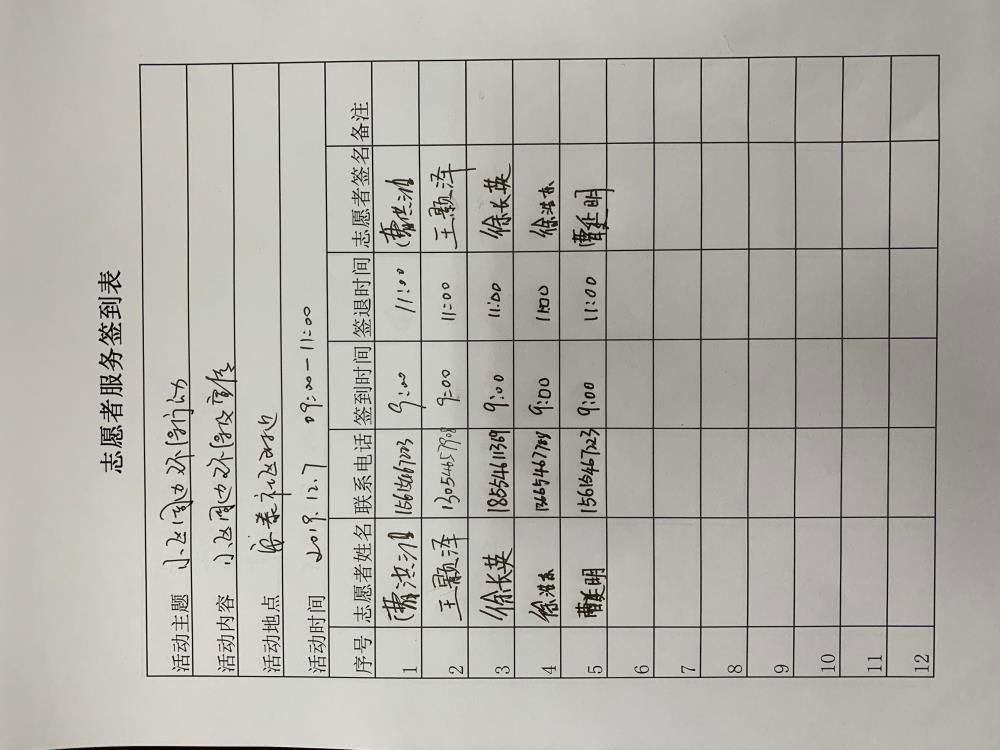 志愿者服务签到表
活动主题 小区周边环境行动
活动内容 小区周边环境及宣传
活动地点 泰社区
活动时间 2019.12.7 09:00-11:00
序号 志愿者姓名 联系电话 签到时间 签退时间 志愿者签名 备注
1 曹洪 9:00 11:00 曹洪
2 王颢泽 13054657908 9:00 11:00 王颢泽
3 徐长英 18554611369 9:00 11:00 徐长英
4 徐浩东 13665467789 9:00 11:00 徐浩东
5 曹廷明 15615467223 9:00 11:00 曹廷明
6
7
8
9
10
11
12